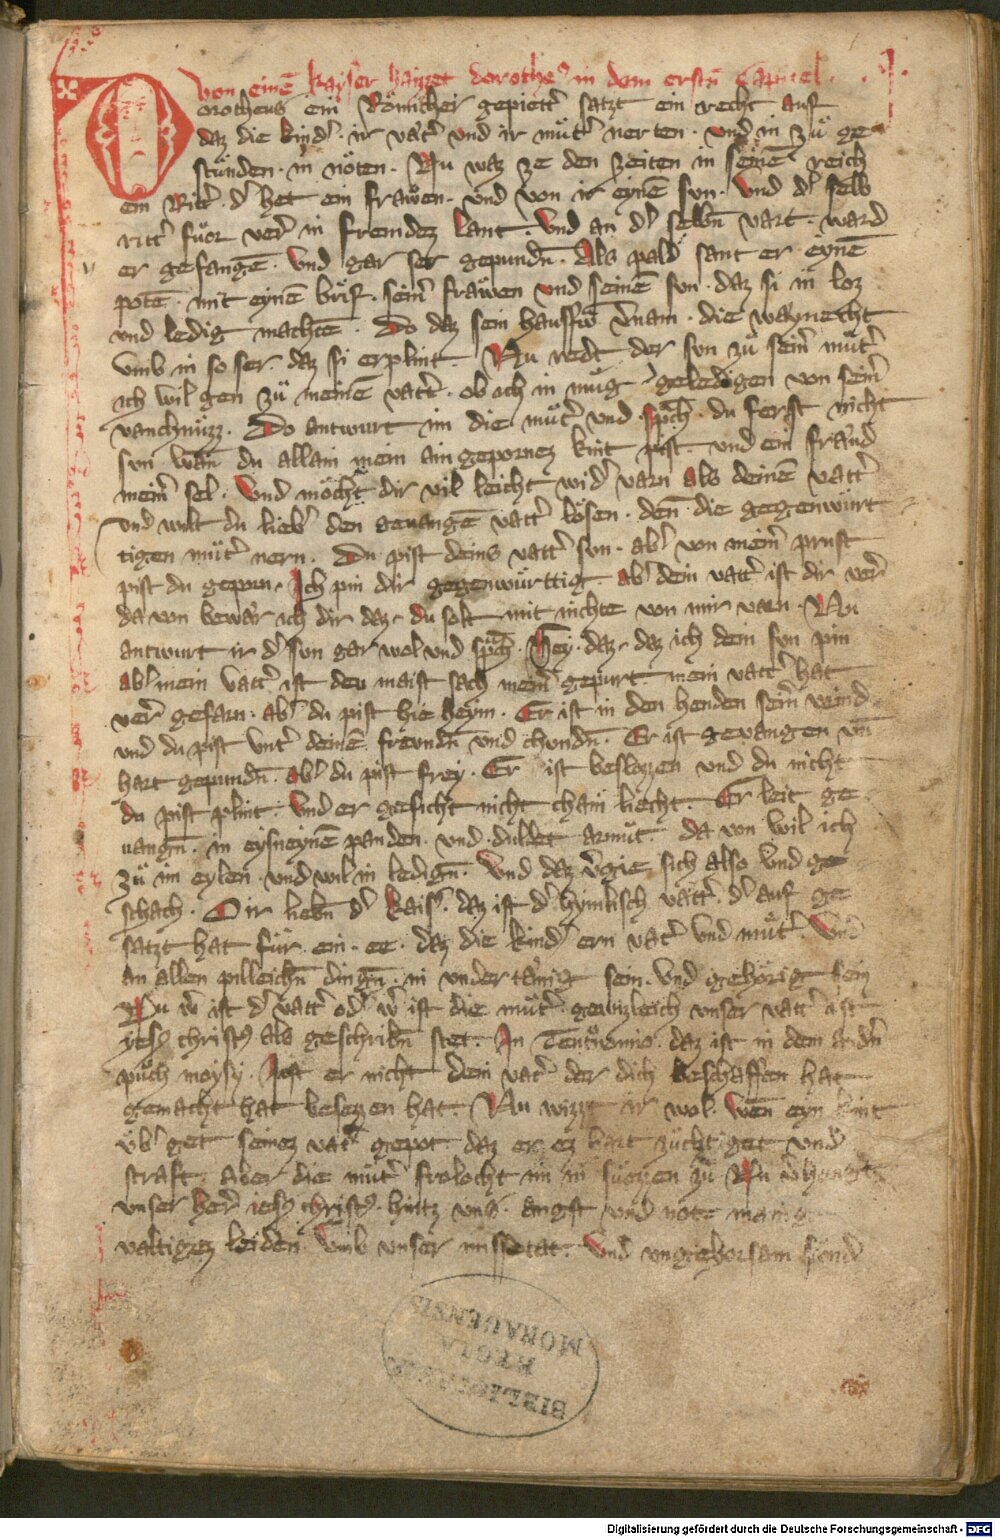 von einē kayser haizzet dorothe⁹ in dem erstn̄ Capitel · I ·
Dorotheus ein Römischer gepiett͛ satzt ein recht auf
daz die kind͛ · ir vat͛ vnd ir mut͛ nerten · vnd in zů ge
stůnden · in nöten · Nu waz ze den zeiten in seinē reich
ein Ritt͛ · d͛ het ein frawen · vnd von ir eynē sun · vnd d͛ selb
ritt͛ fůor ver͛ in fremdez lant · vnd an d͛ selbn̄ vart · ward
er gefangē · vnd gar ser gepundn̄ · Als pald sant er eynē
potē · mit eynē brif · sein͛ frawen vnd seinē sun · daz si in loz
vnd ledig machtē · Do daz sein hausfrō v͛nam · die waynecht
vmb in so ser · daz si erplint · Nu redt der sun zů sein͛ mut͛
ich wil gen zů meinē vat͛ · ob och in mug geledigen von sein͛
vanchnuzz · Do antwurt im die mut͛ vnd sp̄ch · du ferst nicht
sun wan du allain mein aingepornez kint pist · vnd ein fraud
mein͛ sel · vnd möcht dir vil leicht wid͛ varn als deinē vatt͛
vnd wilt du lieb͛ den geuangē vatt͛ lösen · denn die gegenwürt
tigen mut͛ nern · Du pist deins vatt͛ sun · ab͛ von mein͛ prust
pist du geporn · Ich pin dir gegenwürttig · ab͛ dein vatt͛ ist dir ver͛
da von bewar ich dir daz · du solt mit nichte von mir varn · Nu
antwurt ir d͛ sun gar wol vnd sp̄ch · Hey · daz · daz ich dein sun pin
ab͛ mein vatt͛ ist deu maist sach mein͛ gepurt · mein vatt͛ hat
ver͛ gefarn · ab͛ du pist hie heym · Er ist in den henden sein͛ veind
vnd du pist vnt͛ deinē freundn̄ vnd chundn̄ · Er ist geuangen vn̄
hart gepundn̄ · ab͛ du pist frey · Er ist beslozzen vnd du nicht
du pist plint · vnd er gesicht nicht chain liecht · Er leit ge
uangn̄ · in eysneynē panden · vnd duldet armut · da von wil ich
zů im eylen · vnd wil in ledign̄ · vnd daz v͛gie sich also vnd ge
schach · O ir liebn̄ d͛ kais͛ · daz ist d͛ hymlisch vatt͛ · d͛ auf ge
satzt hat für · ein · ee · daz die kind͛ ern vat͛ vnd mut͛ · vnd
an allen pilleichn̄ dingn̄ · in undertänig sein · vnd gehörig sein
Nu w͛ ist d͛ vatt͛ od͛ w͛ ist die mut͛ · gewizleich vnser vatt͛ ist
ies⁹ christ⁹ als geschribn̄ stet · In · daz ist in dem andn̄
půch moysy · Jst er nicht dein vat͛ der dich beschaffen hat
gemacht hat besezzen hat · Nu wizzt ir wol · wen eyn kint
üb͛ get seinez vat͛ gepot · daz er ez hart züchtiget vnd
straft · aber die mut͛ frolocht im in zů · Nu v͛hengt
vnser her͛ ies⁹ christ⁹ hintz vns · angst vnd note manig
valtigez leiden · vmb vnser missetat · vnd vngehorsam
BIBLIOTHECA
REGIA
MONACENSIS
Digitalisierung gefördert durch die Deutsche Forschungsgemeinschaft - DFG